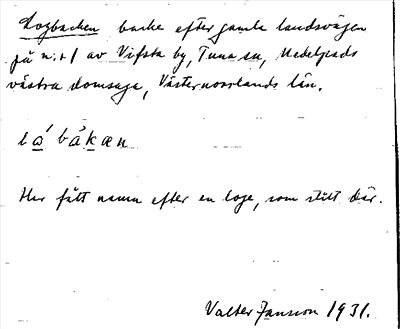 Logbacken backe efter gamla landsvägen
på n:r 1 av Vifsta by, Tuna sn, Medelpads
västra domsaga, Västernorrlands län.
lá bákæn
Har fått namn efter en loge, som stått där.
Valter Jansson 1931.